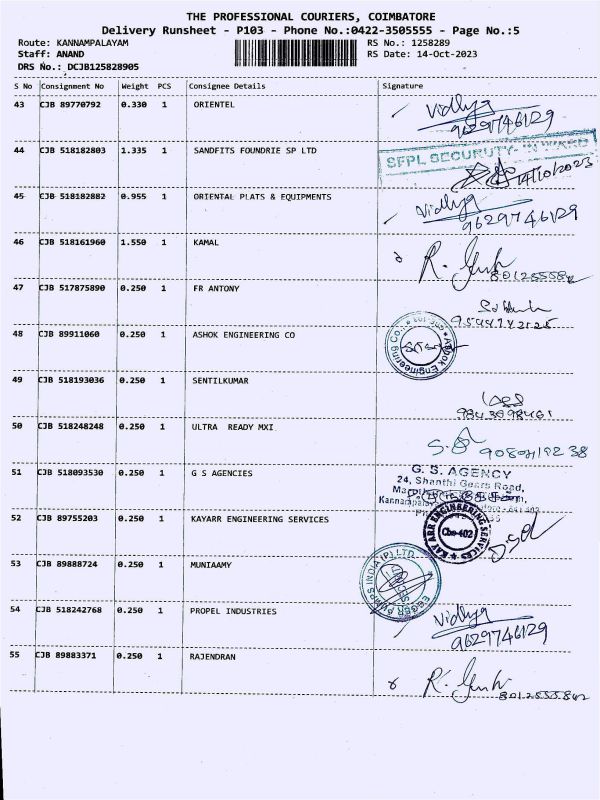 THE PROFESSIONAL COURIERS, COIMBATORE
Delivery Runsheet - P103 - Phone No.:0422-3505555 - Page No.:5
Route: KANNAMPALAYAM RS No.: 1258289
Staff: ANAND RS Date: 14-Oct-2023
DRS No.: DCJB125828905
S No Consignment No Weight PCS Consignee Details Signature
43 CJB 89770792 0.330 1 ORIENTEL Vidhya
9629746129
44 CJB 518182803 1.335 1 SANDFITS FOUNDRIE SP LTD SFPL SECURUTY
14/10/2023
45 CJB 518182882 0.955 1 ORIENTAL PLATS & EQUIPMENTS Vidhya
9629746129
46 CJB 518161960 1.550 1 KAMAL
47 CJB 517875890 0.250 1 FR ANTONY
48 CJB 89911060 0.250 1 ASHOK ENGINEERING CO Ashok Engineering Co.
49 CJB 518193036 0.250 1 SENTILKUMAR
50 CJB 518248248 0.250 1 ULTRA READY MXI
51 CJB 518093530 0.250 1 G S AGENCIES G. S. AGENCY
24, Shanthi Gears Road,
52 CJB 89755203 0.250 1 KAYARR ENGINEERING SERVICES KAY ARR ENGINEERING SERVICES
Cbe-402
53 CJB 89888724 0.250 1 MUNIAAMY EGGER PUMPS INDIA (P) LTD
54 CJB 518242768 0.250 1 PROPEL INDUSTRIES Vidhya
9629746129
55 CJB 89883371 0.250 1 RAJENDRAN